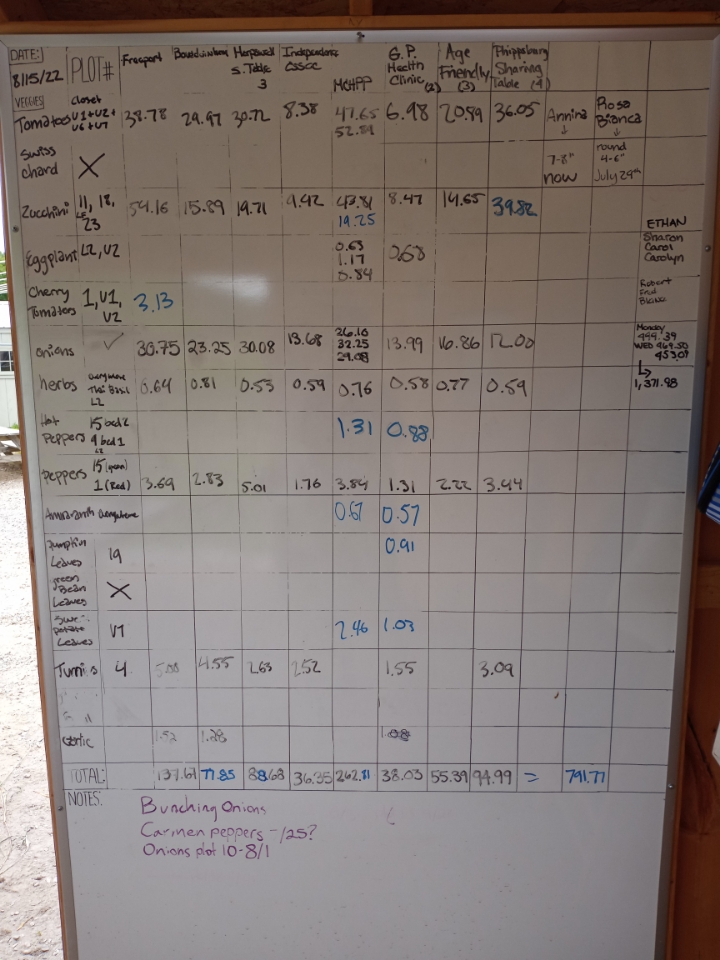 DATE:
8/15/22 PLOT# Freeport Bowdoinham Harpswell S. Table 3 Independence CSSGC MCHPP G.P. Health Clinic (2) Age Friendly (3) Phippsburg Sharing Table (4)
VEGGIES closet
Tomatoes V1+V2+ V6+V7 38.78 29.97 30.72 8.38 47.65 6.98 20.89 36.05 Annina Rosa Bianca
52.81
Swiss chard X 7-8" now round 4-6" July 29th
Zucchini 11, 18, 23 54.16 15.89 19.71 9.42 43.81 8.47 14.65 39.82
19.25
ETHAN
Sharon
Carol
Carolyn
Eggplant L2, V2 0.63 0.68
1.17
0.84
Robert
Fred
Cherry Tomatoes 1, V1, V2 3.13
Onions ✓ 30.75 23.25 30.08 13.68 26.10 13.99 16.86 12.00
32.25
29.08
Monday
449.39
WED 469.50
453.09
↳
1,371.98
herbs everywhere Thai Basil L2 0.64 0.81 0.53 0.59 0.76 0.58 0.77 0.59
Hot Peppers 15 bed 2 9 bed 1 1.31 0.88
Peppers 15 (green) 1 (Red) 3.69 2.83 5.01 1.76 3.84 1.31 2.22 3.44
Amaranth everywhere 0.67 0.57
Pumpkin Leaves 19 0.91
green Bean Leaves X
Sweet potato Leaves V7 2.46 1.03
Turnips 4 5.00 4.55 2.63 2.52 1.55 3.09
1.52 1.28 1.08
TOTAL: 137.67 77.85 88.68 36.35 262.81 38.03 55.39 94.99 = 791.77
NOTES:
Bunching Onions
Carmen peppers - 125?
Onions plot 10 - 8/1